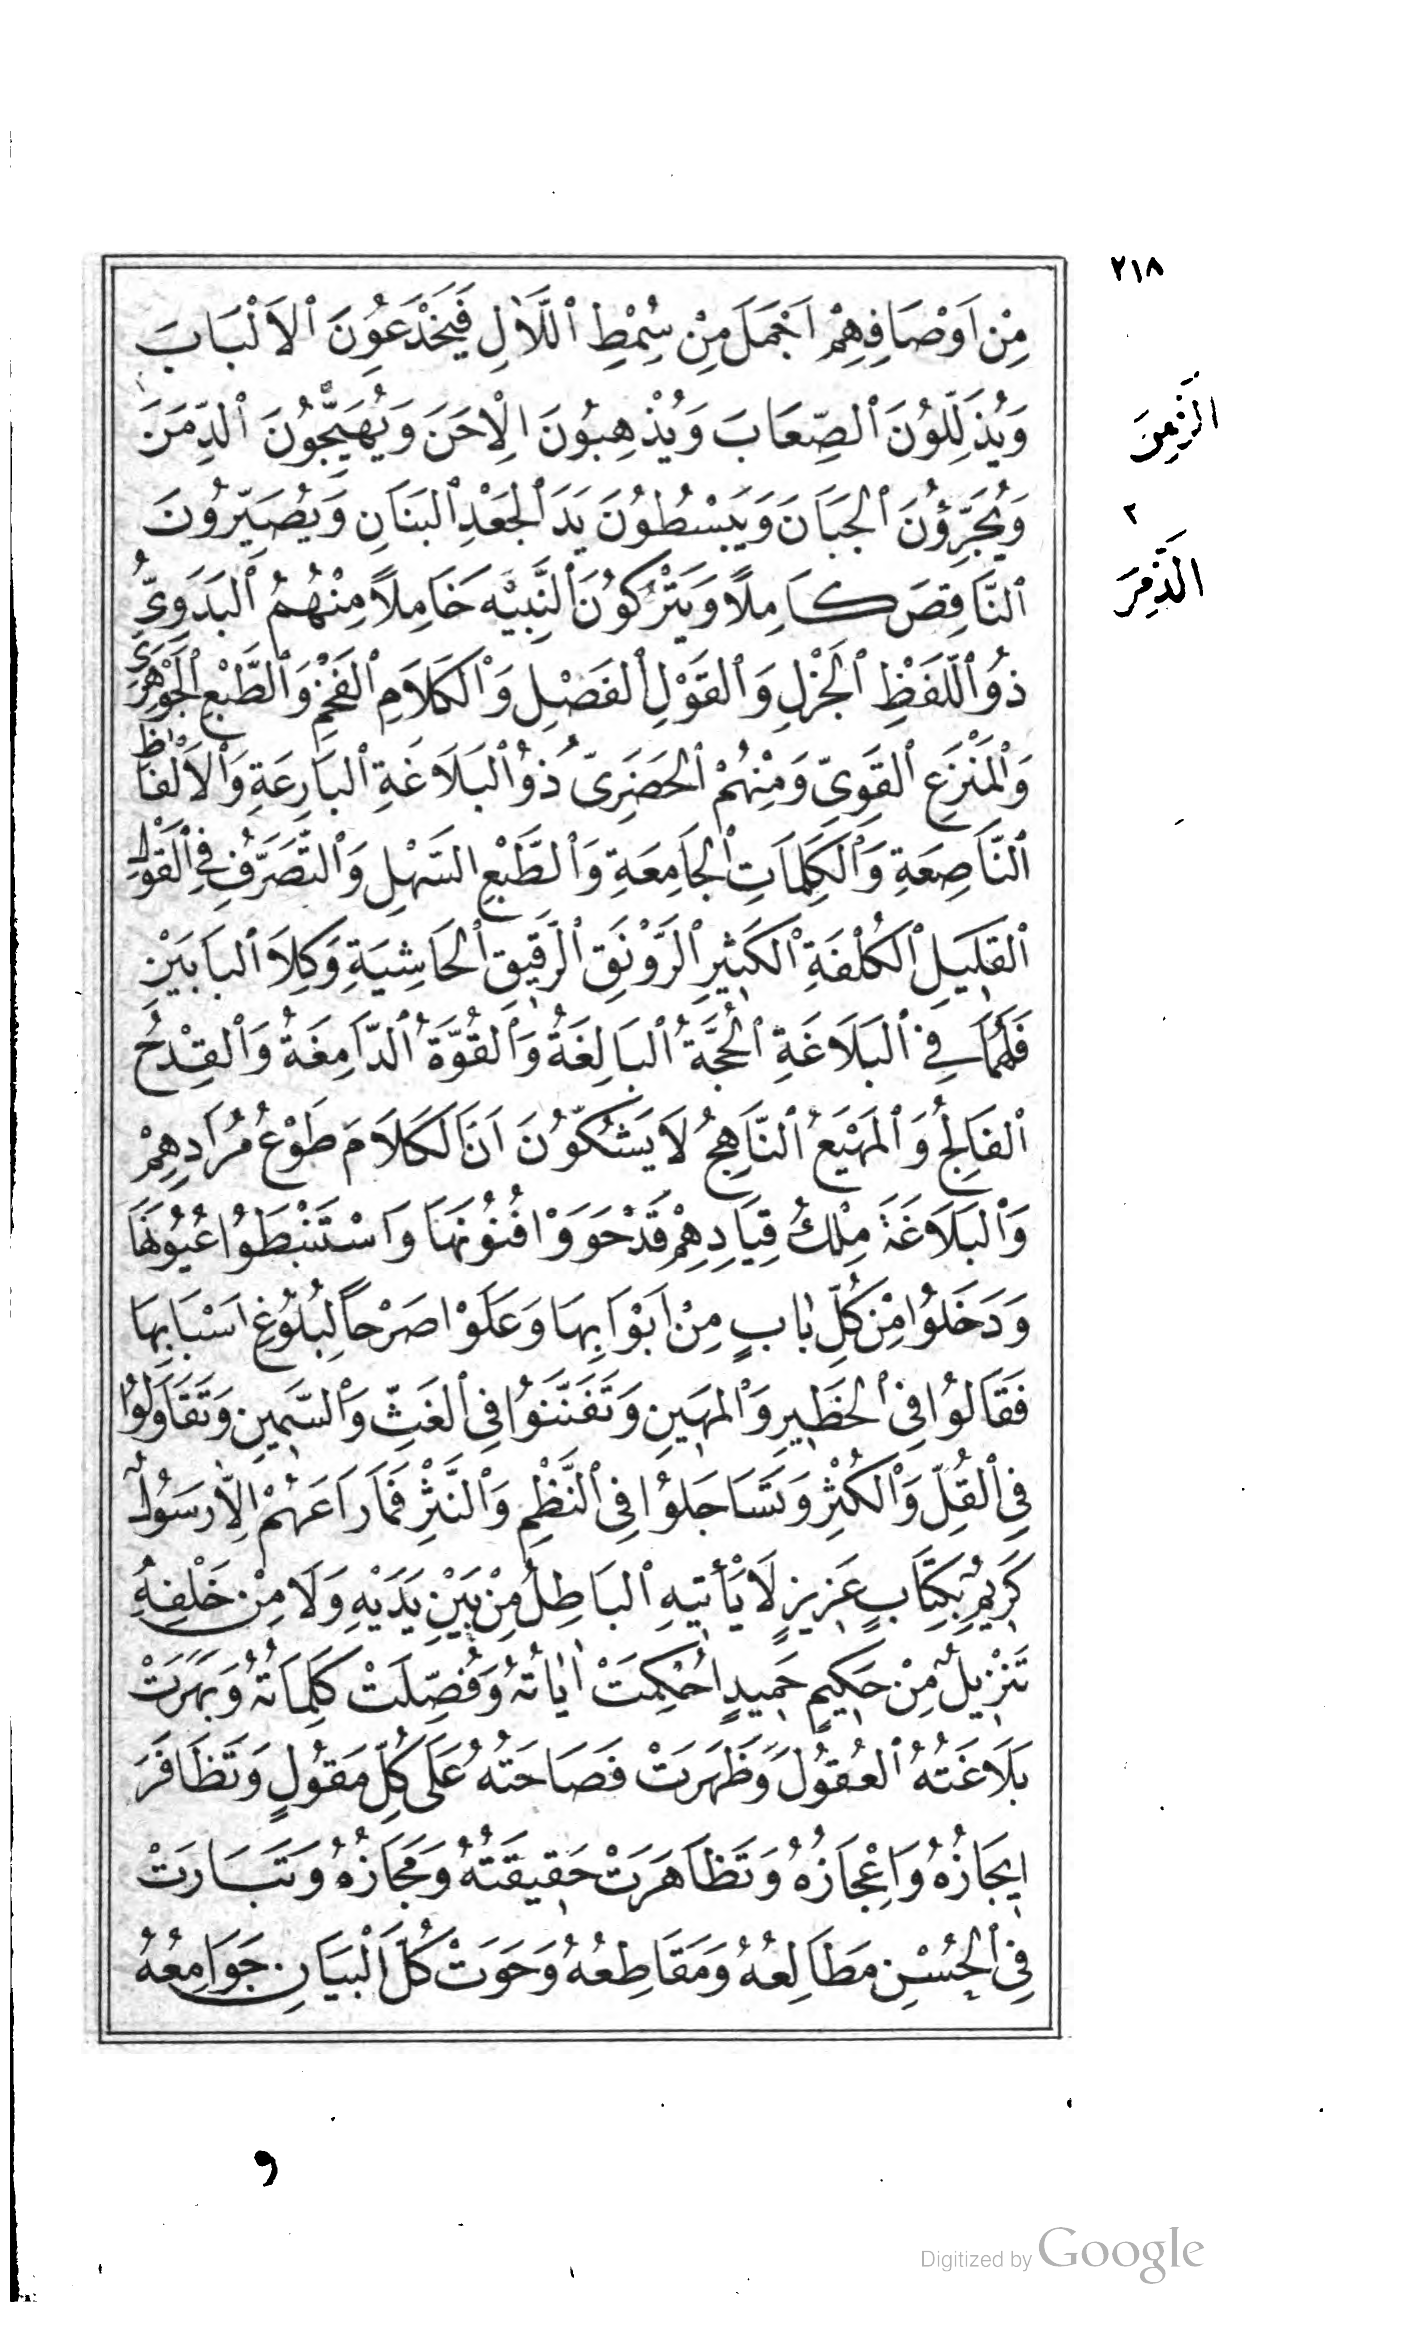 ٢١٨
مِنْ اَوْصَافِهِمْ اَجْمَلَ مِنْ سُمْطِ ٱللَّاٰلِ فَيَخْدَعُونَ ٱلاَلْبَابَ
وَيُذَلِّلُونَ ٱلصِّعَابَ وَيُذْهِبُونَ ٱلْاِحَنَ وَيُهَيِّجُونَ ٱلدِّمَنَ
وَيُجَرِّؤُنَ ٱلجَبَانَ وَيَبْسُطُونَ يَدَ ٱلجَعْدِ ٱلبَنَانِ وَيُصَيِّرُونَ
ٱلنَّاقِصَ كَامِلاً وَيَتْرُكُونَ ٱلنَّبِيهَ خَامِلاً مِنْهُمُ ٱلبَدَوِيُّ
ذُو ٱللَّفْظِ ٱلجَزْلِ وَٱلقَوْلِ ٱلفَصْلِ وَٱلْكَلَامِ ٱلفَخْمِ وَٱلطَّبْعِ ٱلجَوْهَرِيِّ
وَٱلْمَنْزَعِ ٱلقَوِيِّ وَمِنْهُمْ ٱلحَضَرِىُّ ذُو ٱلْبَلَاغَةِ ٱلبَارِعَةِ وَٱلْاَلْفَاظِ
ٱلنَّاصِعَةِ وَٱلْكَلِمَاتِ ٱلجَامِعَةِ وَٱلطَّبْعِ السَّهْلِ وَٱلتَّصَرُّفِ فِي ٱلْقَوْلِ
ٱلقَلِيلِ ٱلْكُلْفَةِ ٱلكَثِيرِ ٱلرَّوْنَقِ ٱلرَّقِيقِ ٱلحَاشِيَةِ وَكِلاَ ٱلبَابَيْنِ
فَلَهُمَا فِي ٱلْبَلَاغَةِ ٱلحُجَّةُ ٱلبَالِغَةُ وَٱلْقُوَّةُ ٱلدَّامِغَةُ وَٱلْقِدْحُ
ٱلفَالِجُ وَٱلْمَهْيَعُ ٱلنَّاهِجُ لَا يَشُكُّونَ اَنَّ الْكَلَامَ طَوْعُ مُرَادِهِمْ
وَٱلْبَلَاغَةَ مِلْكُ قِيَادِهِمْ قَدْ حَوَوْا فُنُونَهَا وَاسْتَنْبَطُوا عُيُونَهَا
وَدَخَلُوا مِنْ كُلِّ بَابٍ مِنْ اَبْوَابِهَا وَعَلَوْا صَرْحاً لِبُلُوغِ اَسْبَابِهَا
فَقَالُوا فِى ٱلخَطِيرِ وَٱلْمَهِينِ وَتَفَنَّنُوا فِى ٱلْغَثِّ وَٱلسَّمِينِ وَتَقَاوَلُوا
فِي ٱلْقُلِّ وَٱلْكُثْرِ وَتَسَاجَلُوا فِى ٱلنَّظْمِ وَٱلنَّثْرِ فَمَا رَاعَهُمْ اِلاَّ رَسُولٌ
كَرِيمٌ بِكِتَابٍ عَزِيزٍ لَا يَأْتِيهِ ٱلْبَاطِلُ مِنْ بَيْنِ يَدَيْهِ وَلَا مِنْ خَلْفِهِ
تَنْزِيلٌ مِنْ حَكِيمٍ حَمِيدٍ اُحْكِمَتْ اٰيَاتُهُ وَفُصِّلَتْ كَلِمَاتُهُ وَبَهَرَتْ
بَلَاغَتُهُ ٱلعُقُولَ وَظَهَرَتْ فَصَاحَتُهُ عَلَى كُلِّ مَقُولٍ وَتَظَافَرَ
اِيجَازُهُ وَاِعْجَازُهُ وَتَظَاهَرَتْ حَقِيقَتُهُ وَمَجَازُهُ وَتَبَارَتْ
فِى ٱلحُسْنِ مَطَالِعُهُ وَمَقَاطِعُهُ وَحَوَتْ كُلَّ ٱلْبَيَانِ جَوَامِعُهُ
الزَّمِنَ
٢
الذَّمِرَ
و
Digitized by Google